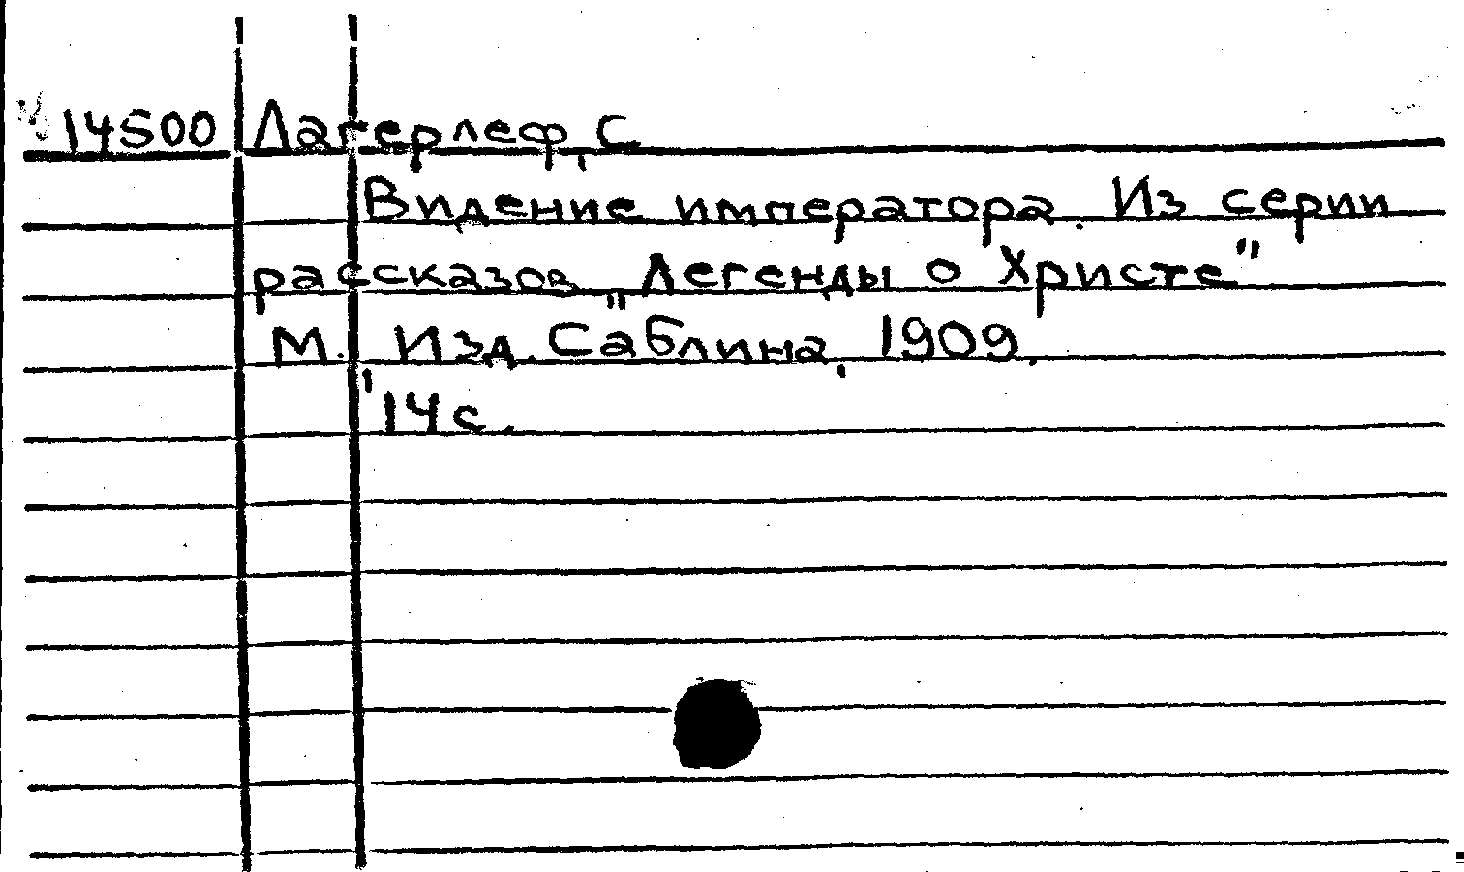 14500 Лагерлеф, С
Видение императора. Из серии
рассказов „Легенды о Христе"
М., Изд. Саблина, 1909.
14с.